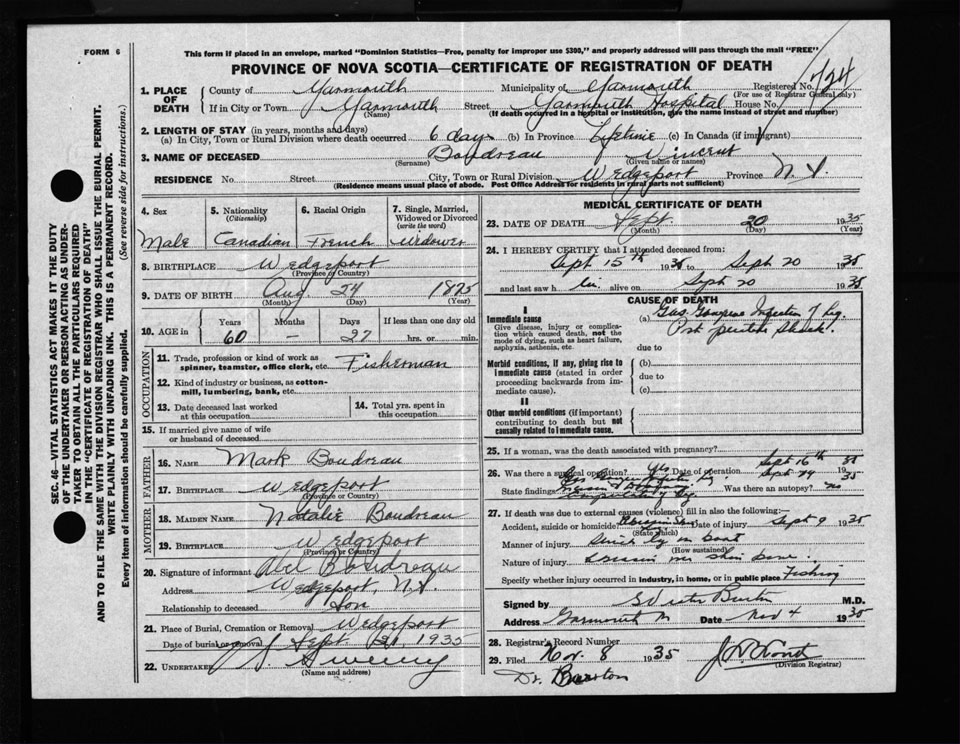 FORM 6
This form if placed in an envelope, marked "Dominion Statistics—Free, penalty for improper use $300," and properly addressed will pass through the mail "FREE"
PROVINCE OF NOVA SCOTIA—CERTIFICATE OF REGISTRATION OF DEATH
SEC. 46—VITAL STATISTICS ACT MAKES IT THE DUTY
OF THE UNDERTAKER OR PERSON ACTING AS UNDER-
TAKER TO OBTAIN ALL THE PARTICULARS REQUIRED
IN THE "CERTIFICATE OF REGISTRATION OF DEATH"
AND TO FILE THE SAME WITH THE DIVISION REGISTRAR WHO SHALL ISSUE THE BURIAL PERMIT.
WRITE PLAINLY WITH UNFADING INK. THIS IS A PERMANENT RECORD.
Every item of information should be carefully supplied. (See reverse side for instructions.)
1. PLACE OF DEATH County of Yarmouth Municipality of Yarmouth Registered No. 724
(For use of Registrar General only)
If in City or Town Yarmouth Street Yarmouth Hospital House No.
(Name) (If death occurred in a hospital or institution, give the name instead of street and number)
2. LENGTH OF STAY (in years, months and days)
(a) In City, Town or Rural Division where death occurred 6 days (b) In Province Lifetime (c) In Canada (if immigrant)
3. NAME OF DECEASED Boudreau Vincent
(Surname) (Given name or names)
RESIDENCE No. Street City, Town or Rural Division Wedgeport Province N.S.
(Residence means usual place of abode. Post Office Address for residents in rural parts not sufficient)
4. Sex Male
5. Nationality (Citizenship) Canadian
6. Racial Origin French
7. Single, Married, Widowed or Divorced (write the word) Widower
8. BIRTHPLACE Wedgeport
(Province or Country)
9. DATE OF BIRTH Aug 24 1875
(Month) (Day) (Year)
10. AGE in Years 60 Months – Days 27 If less than one day old hrs. or min.
OCCUPATION
11. Trade, profession or kind of work as spinner, teamster, office clerk, etc. Fisherman
12. Kind of industry or business, as cotton-mill, lumbering, bank, etc.
13. Date deceased last worked at this occupation
14. Total yrs. spent in this occupation
15. If married give name of wife or husband of deceased
FATHER
16. NAME Mark Boudreau
17. BIRTHPLACE Wedgeport
(Province or Country)
MOTHER
18. MAIDEN NAME Natalie Boudreau
19. BIRTHPLACE Wedgeport
(Province or Country)
20. Signature of informant Boudreau
Address Wedgeport, N.S.
Relationship to deceased Son
21. Place of Burial, Cremation or Removal Wedgeport
Date of burial or removal Sept. 1935
22. UNDERTAKER Sweeny
(Name and address)
MEDICAL CERTIFICATE OF DEATH
23. DATE OF DEATH Sept. 20 1935
(Month) (Day) (Year)
24. I HEREBY CERTIFY that I attended deceased from:
Sept 15th 1935 to Sept 20 1935
and last saw h alive on Sept 20 1935
CAUSE OF DEATH
I
Immediate cause
Give disease, injury or complication which caused death, not the mode of dying, such as heart failure, asphyxia, asthenia, etc.
(a) Gas Gangrene Infection of Leg
Post operative Shock.
due to
Morbid conditions, if any, giving rise to immediate cause (stated in order proceeding backwards from immediate cause).
(b)
due to
(c)
II
Other morbid conditions (if important) contributing to death but not causally related to immediate cause.
25. If a woman, was the death associated with pregnancy?
26. Was there a surgical operation? Yes Date of operation Sept 16th 1935
State findings Was there an autopsy? no
27. If death was due to external causes (violence) fill in also the following:—
Accident, suicide or homicide Date of injury Sept 9 1935
(State which)
Manner of injury in boat
(How sustained)
Nature of injury shin bone
Specify whether injury occurred in industry, in home, or in public place Fishing
Signed by M.D.
Address Yarmouth Date Nov 4 1935
28. Registrar's Record Number
29. Filed Nov. 8 1935
(Division Registrar)
Dr. Burton